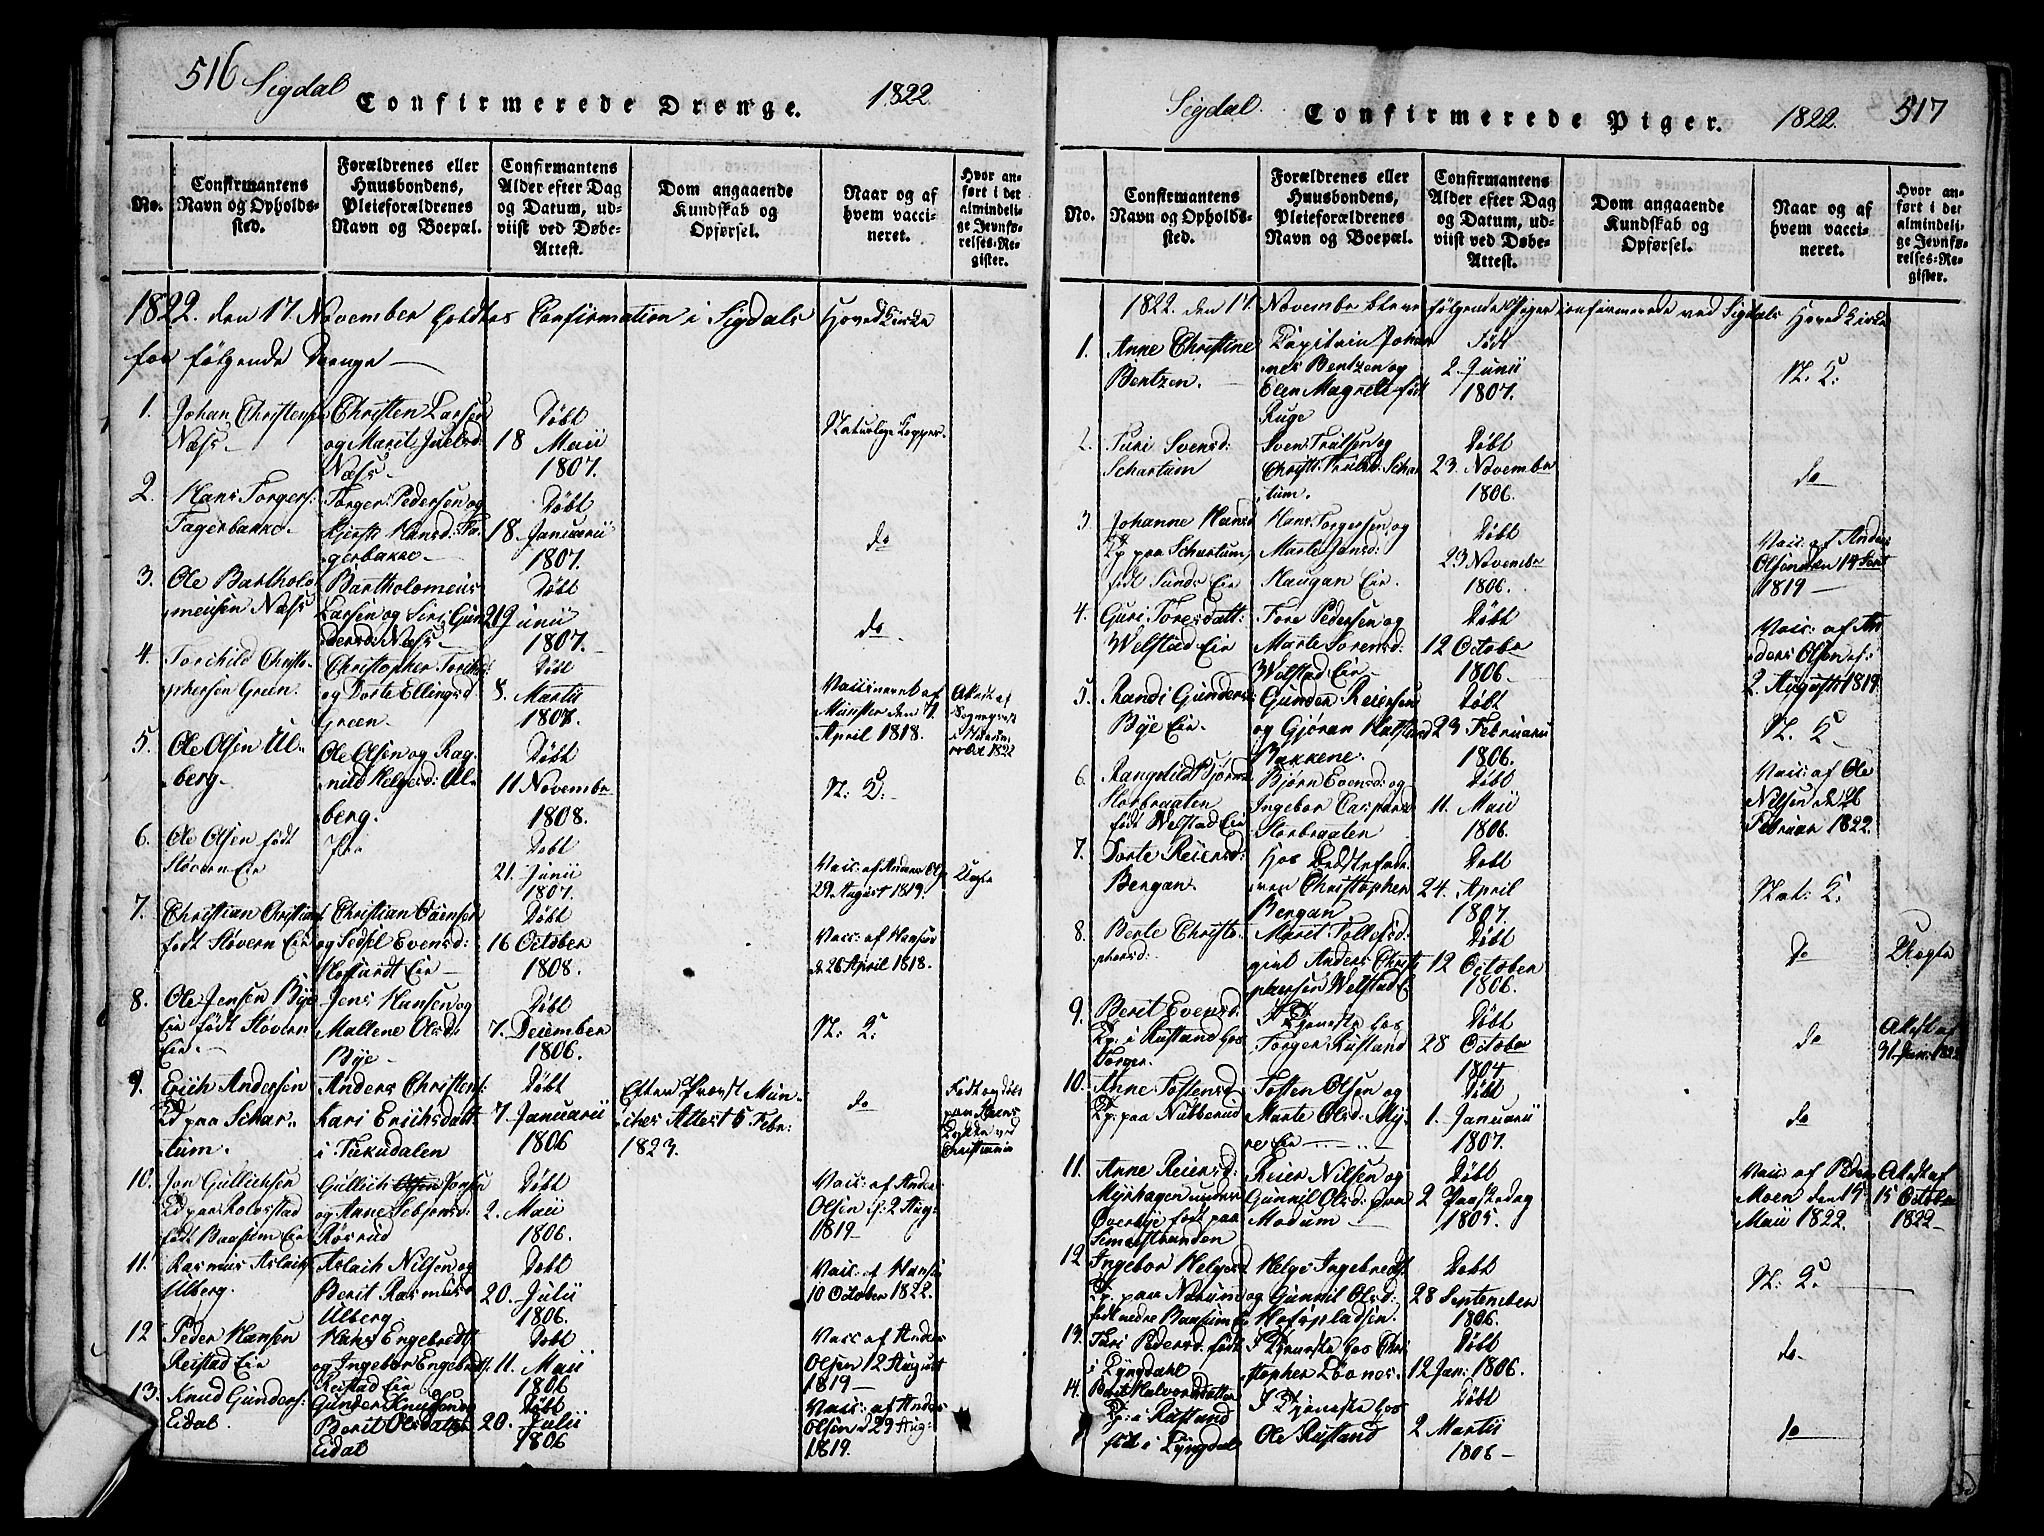 516 Sigdal Confirmerede Drenge. 1822.
No.
Confirmantens
Navn og Opholds-
sted.
Forældrenes eller
Huusbondens,
Pleieforældrenes
Navn og Boepæl.
Confirmantens
Alder efter Dag
og Datum, ud-
viist ved Døbe-
Attest.
Dom angaaende
Kundskab og
Opførsel.
Naar og af
hvem vacci-
neret.
Hvor an-
ført i det
almindeli-
ge Jevnfø-
relses-Re-
gister.
1822. den 17. November holdtes Confirmation i Sigdals Hovedkirke
for følgende Drenge
1.
Johan Christens:
Næss
Christen Larsen
og Marit Juelsd:
Næss
Døbt
18 Maii
1807.
Naturlige Kopper.
2.
Hans Torgers:
Fagerbakke
Torger Pedersen og
Kjersti Hansd: Fa-
gerbakke
Døbt
18. Januarii
1807.
do
3.
Ole Bartholo
meusen Næss
Bartholomeus
Larsen og Siri Gun
dersd: Næss
Døbt
21 Junii
1807.
do
4.
Torchild Christo-
phersen Green.
Christopher Torchilds:
og Dorte Ellingsd
Green
Døbt
8. Martii
1807.
Vaccineret af
Münster den 7.
April 1818.
5.
Ole Olsen Ul-
berg
Ole Olsen og Rag-
nild Helgesd: Ul-
berg.
Døbt
11 November
1808.
N: K:
6.
Ole Olsen født
Støvern Eie
Døbt
21. Junii
1807.
Vacc: af Anders Ols
29. August 1819.
7.
Christian Christians
født Støvern Eie
Christian
og Sidsel Evensd:
Eie
Døbt
16 October
1808.
Vacc: af Hansen
d 26 April 1818.
8.
Ole Jensen Bye
Eie født Støvern
Eie
Jens Hansen og
Mallene Olsd:
Bye
Døbt
7. December
1806.
N: K:
9.
Erich Andersen
paa Schar-
tum.
Anders Christens:
Kari Erichsdatt:
i
Døbt
7. Januarii
1806
Efter Provst Mün-
ches Attest 5 Febr:
1823.
do
Født og døbt
paa
ved
Christiania
10.
Jon Gullichsen
paa Kolsstad
født Baasum Eie
Gullich Olsen Jonsen
og Anne
Røsrud
Døbt
2. Maii
1806.
Vacc: af Anders
Olsen d: 2 Aug:
1819
11.
Rasmus Aslachs
Ulberg.
Aslach Nilsen og
Berit Rasmusd
Ulberg
Døbt
20. Julii
1806.
Vacc: af Hansen
10 October 1822.
12
Peder Hansen
Reistad Eie
Hans Engebredts
og Ingebor Engebreds:
Reistad Eie
Døbt
11. Maii
1806
Vacc: af Anders
Olsen 12 August
1819
13.
Knud Gunders:
Eidal.
Gunder Knudsen og
Berit Olsdatter
Eidal
Døbt
20. Julii
1806
Vacc: af Anders
Olsen d 29 Aug:
1819.
Sigdal. Confirmerede Piger. 1822. 517
No.
Confirmantens
Navn og Opholds-
sted.
Forældrenes eller
Huusbondens,
Pleieforældrenes
Navn og Boepæl.
Confirmantens
Alder efter Dag
og Datum, ud-
viist ved Døbe-
Attest.
Dom angaaende
Kundskab og
Opførsel.
Naar og af
hvem vacci-
neret.
Hvor an-
ført i det
almindeli-
ge Jevnfø-
relses-Re-
gister.
1822. den 17. November bleve følgende Piger confirmerede ved Sigdals Hovedkirke
1.
Anne Christine
Bentzen.
Capitain Johan
nes Bentzen og
Elen Magrete fød
Ruge
Født
2. Junii
1807.
N: K:
2.
Turi Svensd:
Schartum
Sven Trulsen og
Christi Trulsd: Schar
tum.
Døbt
23. November
1806.
do
3.
Johanne Hansd
paa Schartum,
født Sunds Eie
Hans Torgersen og
Marte Jansd:
Haugan Eie.
Døbt
23 November
1806.
Vacc: af Anders
Olsen den 14 Sept
1819
4.
Guri Toresdatt:
Welstad Eie
Tore Pedersen og
Marte Sorensd:
Welstad Eie
Døbt
12 October
1806
Vacc: af An
ders Olsen d:
2. Augusti 1819
5.
Randi Gundersd:
Bye Eie
Gunder Reiersen
og Gjøran
Bakkene.
Døbt
23 Februarii
1806.
N. K
6.
Rangnild Bjørnsd
Storbraaten
født Welstad Eie
Bjørn Evensd: og
Ingebor Caspersd
Storbraaten
Døbt
11. Maii
1806.
Vacc: af Ole
Nilsen d 26
Februar 1822.
7.
Dorte Reiersd:
Bergan.
hos Bedstefade
ren Christopher
Bergan
Døbt
24. April
1807.
Nat: K:
8.
Berte Christo-
phersd:
Maret Tollefsd:
givt Anders Christo
phersen Welstad E
Døbt
12 October
1806.
do
9.
Berit Evensd:
i Rustand hos
Torger.
I Tjeneste hos
Torger Rustand
Døbt
28 October
1804
do
10.
Anne Tostensd:
paa Nubberud
Tosten Olsen og
Marte Olsd: My-
re Eie
Døbt
1. Januarii
1807.
do
11.
Anne Reiersd:
Myrhagen under
Overbye født paa
Simostranden
Reier Nilsen og
Gunnil Olsd: paa
Modum
Døbt
2 Paaskedag
1805.
Vacc: af Peder
Moen den 19
Maii 1822.
Attest af
15 October
1822
12
Ingebor Helgesd
paa Narum
fød nedre Baasum E
Helge Ingebredts
og Gunnil Olsd:
Hofspladsen.
Døbt
28 September
1806.
N: K:
13.
Turi Pedersd: født
i Lyngdahl
I Tjeneste hos Chri
stopher
Døbt
12 Jan: 1806.
do
14.
Berit Halvorsdatter
i Rustand
født i Lyngdal
I Tjeneste hos
Ole Rustand
Døbt
2 Martii
1806
do